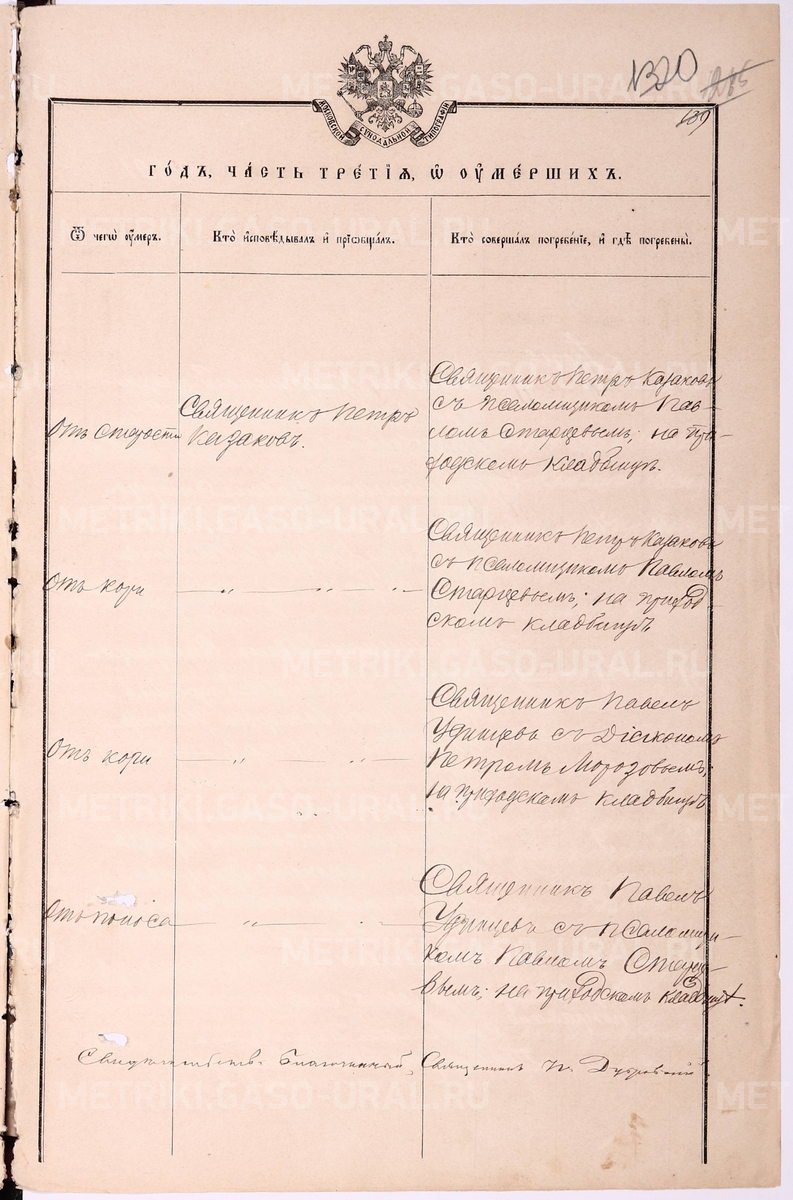 1320
1215
189
МОСКОВСКОЙ СѴНОДАЛЬНОЙ ТИПОГРАФІИ
ГО́ДЪ, ЧА́СТЬ ТРЕ́ТІѦ, Ѿ ОУ҆МЕ́РШИХЪ.
Ѿ чегѡ̀ оу҆́меръ.
Кто̀ и҆сповѣ́дывалъ и҆ прїѡбща́лъ.
Кто̀ соверша́лъ погребе́нїе, и҆ гдѣ̀ погребены̀.
Отъ старости
Священникъ Петръ
Казаковъ.
Священникъ Петръ Казаковъ
съ псаломщикомъ Пав-
ломъ Старцевымъ; на при-
ходскомъ кладбищѣ.
Отъ кори
— „ — „ — „ —
Священникъ Петръ Казаковъ
съ псаломщикомъ Павломъ
Старцевымъ; на приход-
скомъ кладбищѣ
Отъ кори
— „ — „ —
Священникъ Павелъ
Удинцевъ съ Діакономъ
Петромъ Морозовымъ;
на приходскомъ кладбищѣ
Отъ поноса
— „ — „ —
Священникъ Павелъ
Удинцевъ съ псаломщи-
комъ Павломъ Старце-
вымъ; на приходскомъ кладбищѣ.
Благочинный, Священникъ
METRIKI.GASO-URAL.RU